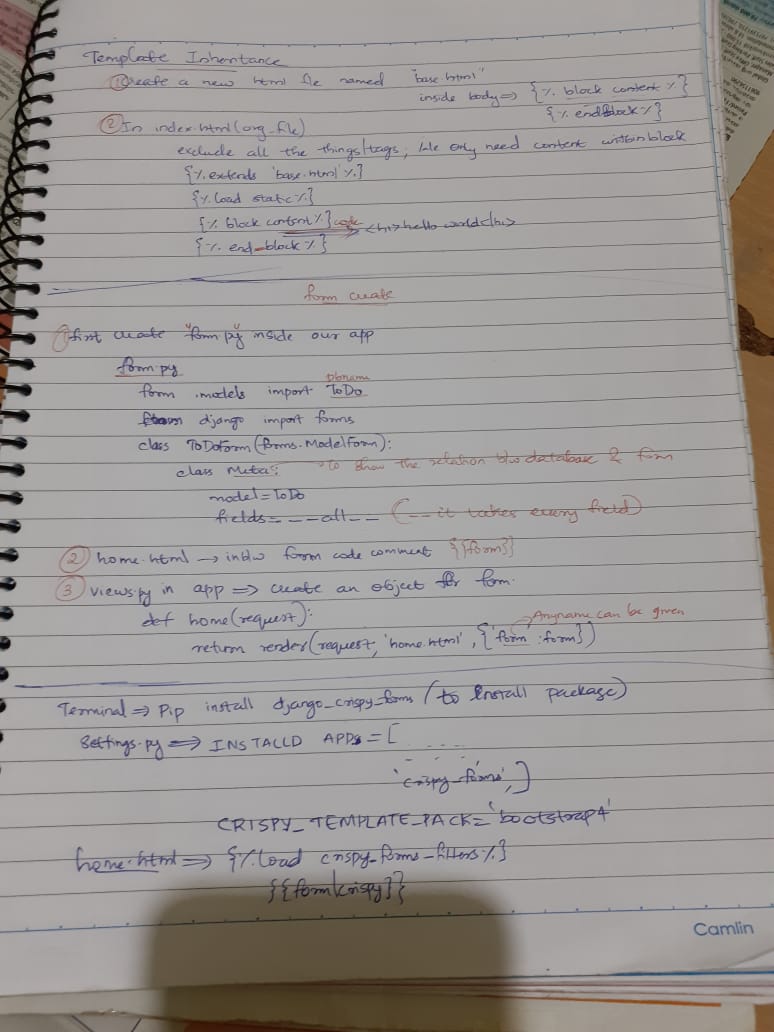 Template Inheritance
① Create a new html file named "base.html"
inside body => {% block content %}
{% endblock %}
② In index.html (org_file)
exclude all the things/tags, We only need content within block
{% extends 'base.html' %}
{% load static %}
{% block content %} code => <h1>hello world</h1>
{% end_block %}
form create
① first create "form.py" inside our app
form.py
dbname
form .models import ToDo
from django import forms
class ToDoform(forms.ModelForm):
class Meta: → To show the relation b/w database & form
model = ToDo
fields = __all__ (__ it takes every field)
② home.html → in b/w form code comment {{form}}
③ views.py in app => create an object for form.
def home(request):
Anyname can be given
return render(request, 'home.html', {'form':form})
Terminal => Pip install django_crispy_forms (to Install package)
Settings.py => INSTALLD APPs = [ ....
- - -
'crispy_forms',]
CRISPY_TEMPLATE_PACK = 'bootstrap4'
home.html => {% load crispy_forms_filters %}
{{form|crispy}}
Camlin